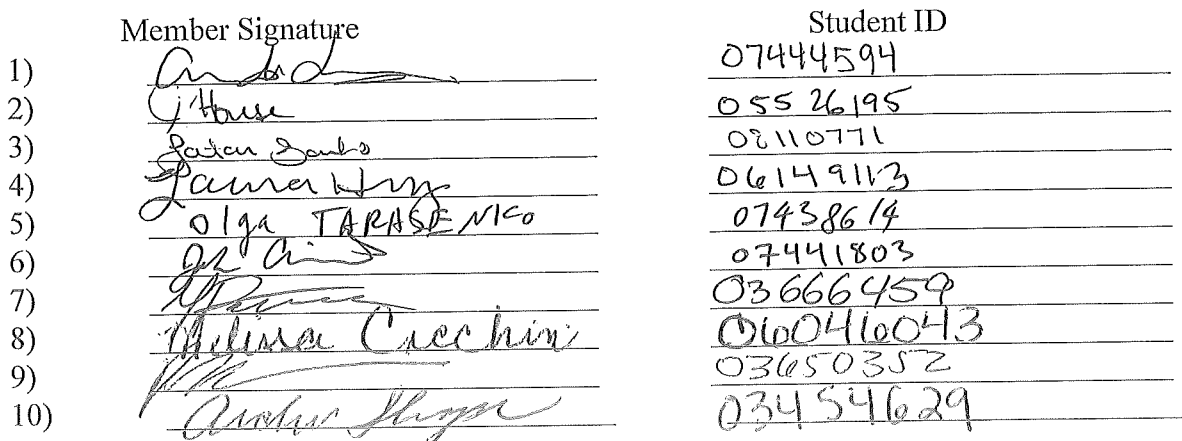 Member Signature Student ID
1) 07444594
2) J House 05526195
3) 08110771
4) Laura 06149113
5) Olga TARASENKO 07438614
6) 07441803
7) 03666459
8) Melissa Cecchin 06046043
9) 03650352
10) 03454629